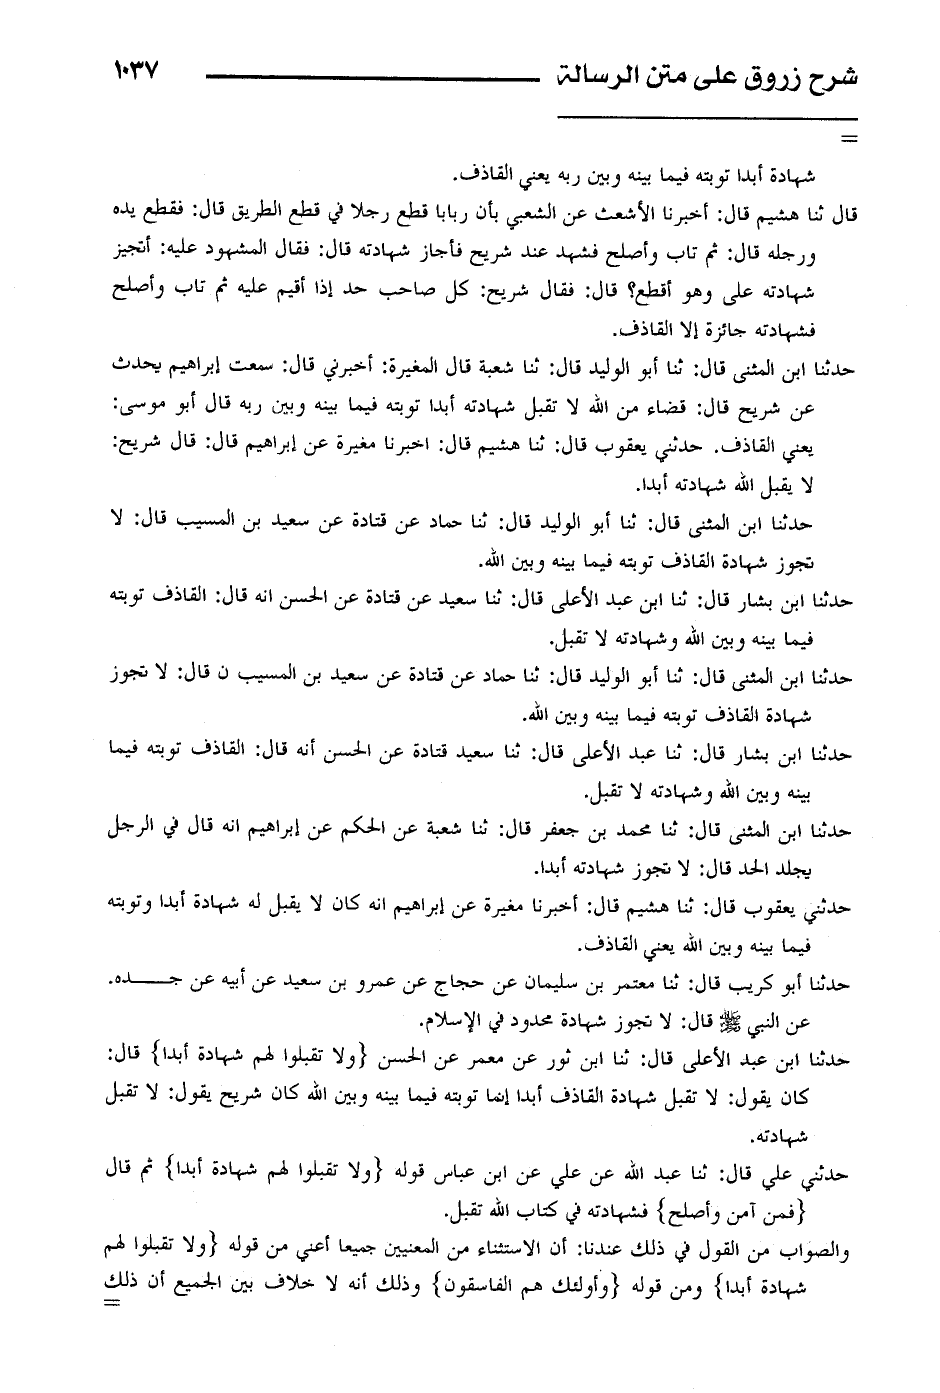 شرح زروق على متن الرسالة ١٠٣٧
=
شهادة أبدا توبته فيما بينه وبين ربه يعني القاذف.
قال ثنا هشيم قال: أخبرنا الأشعث عن الشعبي بأن ربابا قطع رجلا في قطع الطريق قال: فقطع يده
ورجله قال: ثم تاب وأصلح فشهد عند شريح فأجاز شهادته قال: فقال المشهود عليه: أتجيز
شهادته على وهو أقطع؟ قال: فقال شريح: كل صاحب حد إذا أقيم عليه ثم تاب وأصلح
فشهادته جائزة إلا القاذف.
حدثنا ابن المثنى قال: ثنا أبو الوليد قال: ثنا شعبة قال المغيرة: أخبرني قال: سمعت إبراهيم يحدث
عن شريح قال: قضاء من الله لا تقبل شهادته أبدا توبته فيما بينه وبين ربه قال أبو موسى:
يعني القاذف. حدثني يعقوب قال: ثنا هشيم قال: اخبرنا مغيرة عن إبراهيم قال: قال شريح:
لا يقبل الله شهادته أبدا.
حدثنا ابن المثنى قال: ثنا أبو الوليد قال: ثنا حماد عن قتادة عن سعيد بن المسيب قال: لا
تجوز شهادة القاذف توبته فيما بينه وبين الله.
حدثنا ابن بشار قال: ثنا ابن عبد الأعلى قال: ثنا سعيد عن قتادة عن الحسن انه قال: القاذف توبته
فيما بينه وبين الله وشهادته لا تقبل.
حدثنا ابن المثنى قال: ثنا أبو الوليد قال: ثنا حماد عن قتادة عن سعيد بن المسيب ن قال: لا تجوز
شهادة القاذف توبته فيما بينه وبين الله.
حدثنا ابن بشار قال: ثنا عبد الأعلى قال: ثنا سعيد قتادة عن الحسن أنه قال: القاذف توبته فيما
بينه وبين الله وشهادته لا تقبل.
حدثنا ابن المثنى قال: ثنا محمد بن جعفر قال: ثنا شعبة عن الحكم عن إبراهيم انه قال في الرجل
يجلد الحد قال: لا تجوز شهادته أبدا.
حدثني يعقوب قال: ثنا هشيم قال: أخبرنا مغيرة عن إبراهيم انه كان لا يقبل له شهادة أبدا وتوبته
فيما بينه وبين الله يعني القاذف.
حدثنا أبو كريب قال: ثنا معتمر بن سليمان عن حجاج عن عمرو بن سعيد عن أبيه عن جــــده.
عن النبي ﷺ قال: لا تجوز شهادة محدود في الإسلام.
حدثنا ابن عبد الأعلى قال: ثنا ابن ثور عن معمر عن الحسن {ولا تقبلوا لهم شهادة أبدا} قال:
كان يقول: لا تقبل شهادة القاذف أبدا إنما توبته فيما بينه وبين الله كان شريح يقول: لا تقبل
شهادته.
حدثني علي قال: ثنا عبد الله عن علي عن ابن عباس قوله {ولا تقبلوا لهم شهادة أبدا} ثم قال
{فمن آمن وأصلح} فشهادته في كتاب الله تقبل.
والصواب من القول في ذلك عندنا: أن الاستثناء من المعنيين جميعا أعني من قوله {ولا تقبلوا لهم
شهادة أبدا} ومن قوله {وأولئك هم الفاسقون} وذلك أنه لا خلاف بين الجميع أن ذلك
=